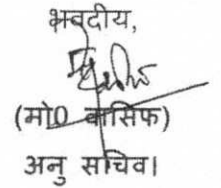 भवदीय,
(मो0 वासिफ)
अनु सचिव।